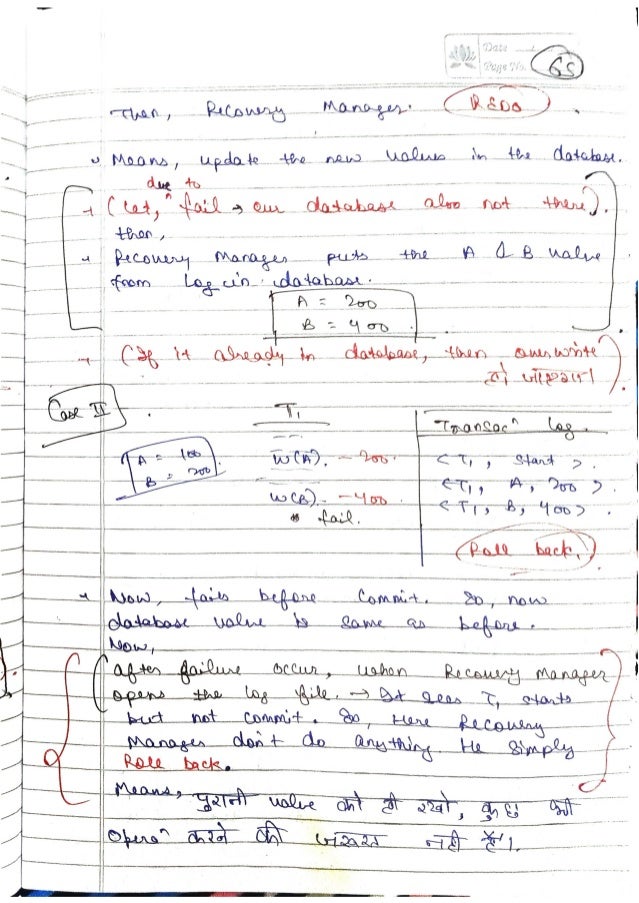 Date
Page No. 65
Then, Recovery Manager. REDO
Means, update the new values in the database.
due to
(Let, ^ fail → our database also not there).
then,
Recovery Manager puts the A & B value
from Log in database.
A = 200
B = 400
(If it already in database, then overwrite
हो जाएगा)
Case II
T1
Transacn log.
A = 100
B = 200
W(A). - 200.
W(B). - 400
* fail.
< T1, start >.
< T1, A, 200 >.
< T1, B, 400 > .
Roll back.
Now, fails before Commit. So, now
database value is same as before.
Now,
after failure occur, when Recovery Manager
opens the log file. → It sees T1 starts
but not commit. So, Here Recovery
Manager don't do anything. He Simply
Roll back.
Means, पुरानी value को ही रखो, कुछ भी
Operan करने की जरूरत नही हैं।